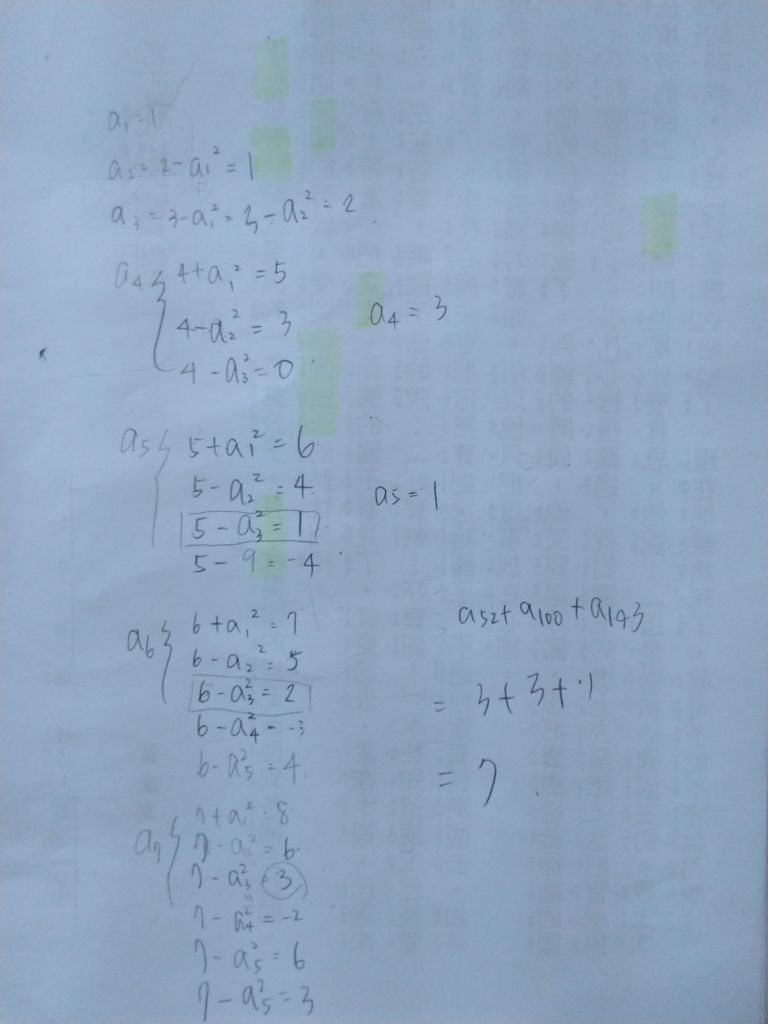 a₁=1
a₂=2-a₁²=1
a₃=3-a₁²=3-a₂²=2
a₄{ 4+a₁²=5
4-a₂²=3
a₄=3
4-a₃²=0
a₅{ 5+a₁²=6
5-a₂²=4
a₅=1
5-a₃²=1
5-9=-4
a₆{ 6+a₁²=7
6-a₂²=5
6-a₃²=2
6-a₄²=-3
6-a₅²=4
a₅₂+a₁₀₀+a₁₄₃
=3+3+1
=7
a₇{ 7+a₁²=8
7-a²=6
7-a₃²=3
7-a₄²=-2
7-a₅²=6
7-a₅²=3